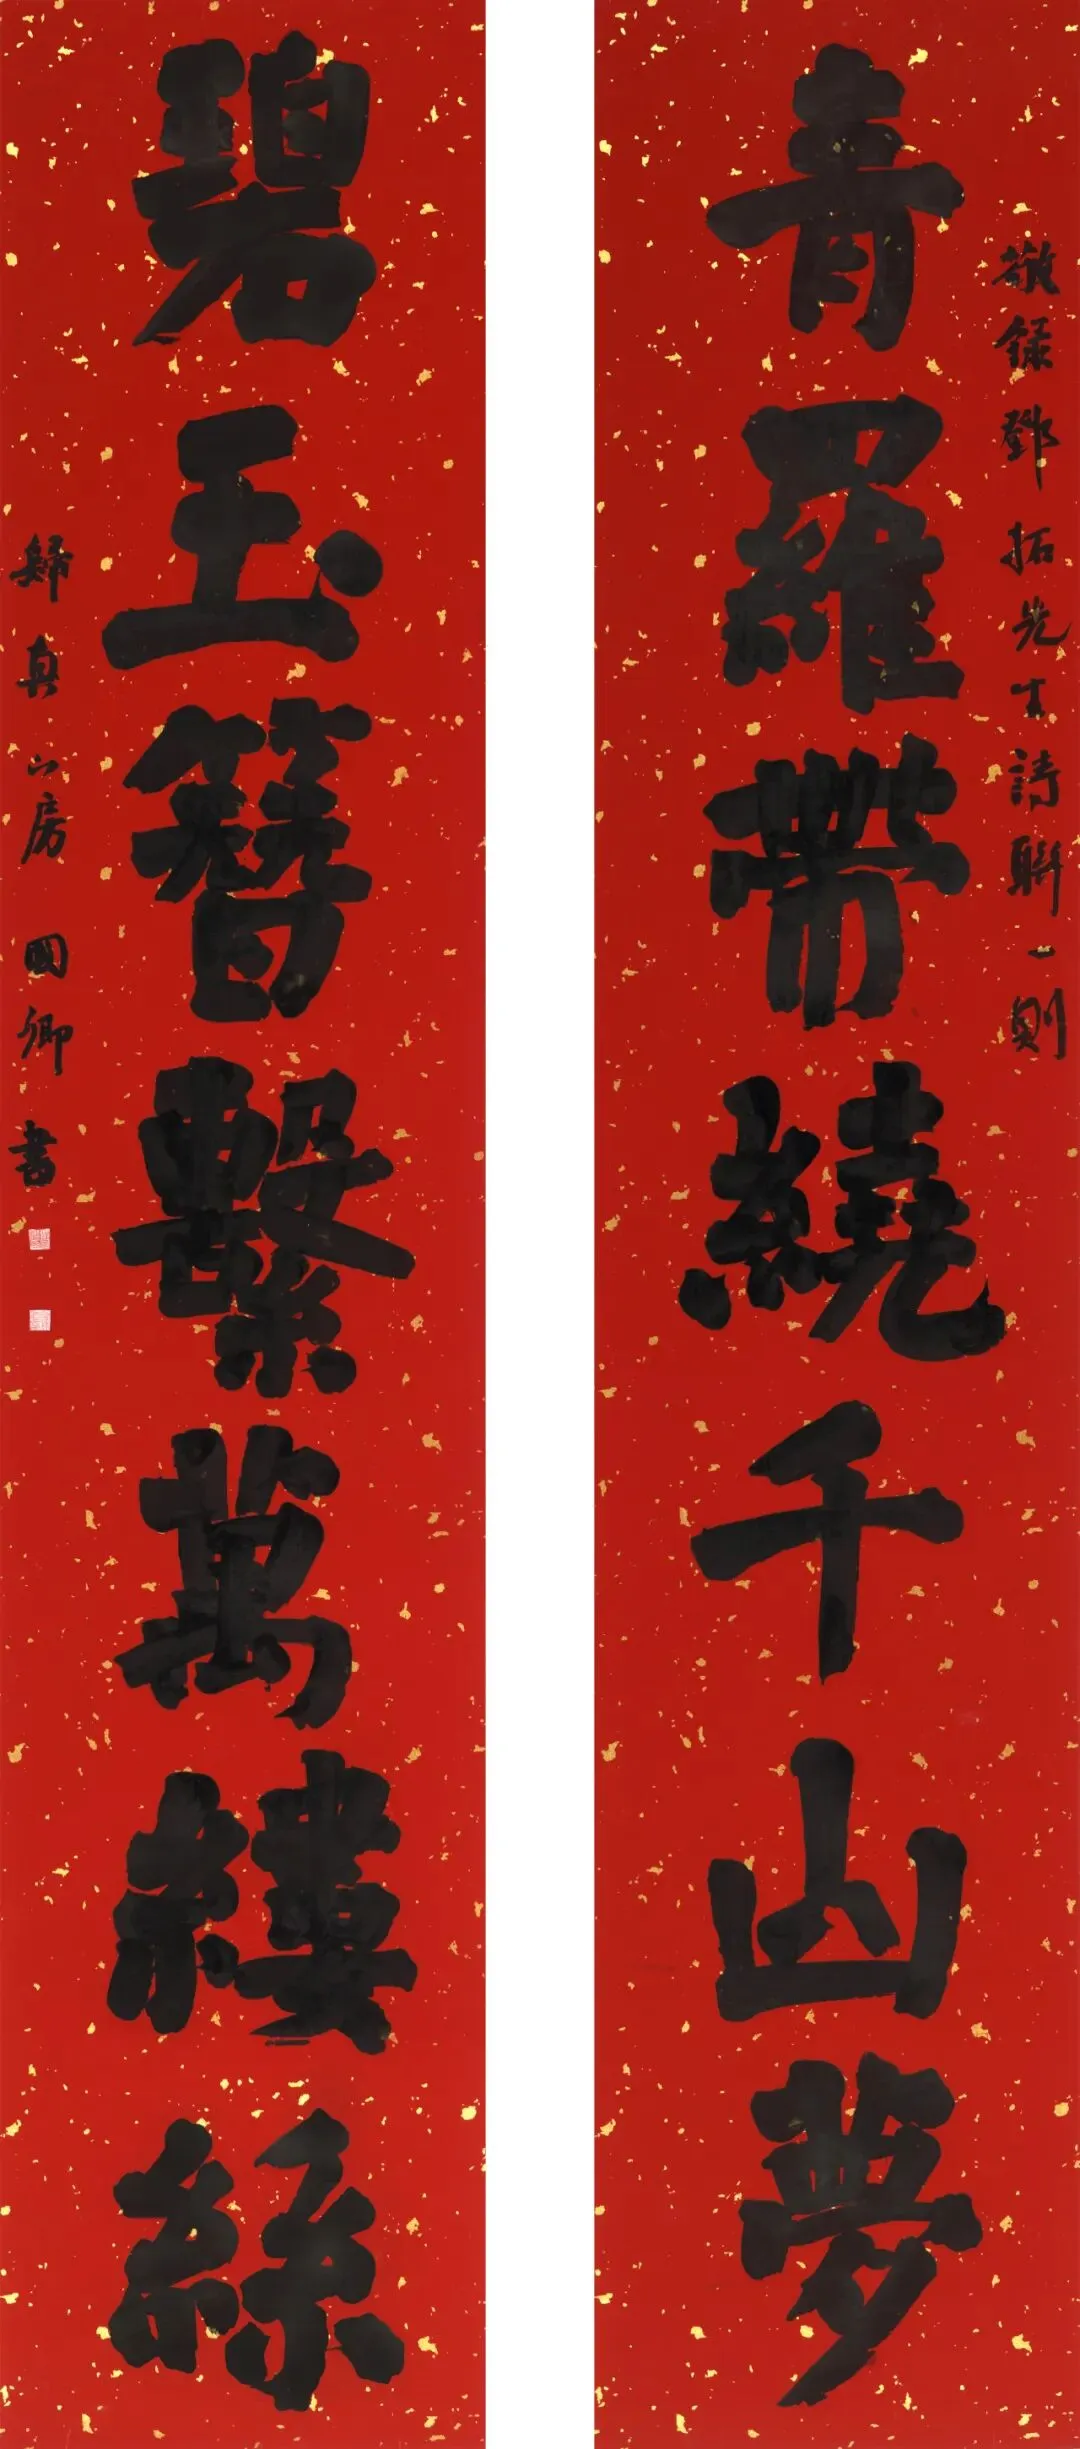 敬錄鄧拓先生詩聯一則
青羅帶繞千山夢
碧玉簪繫萬縷絲
歸真山房國卿書